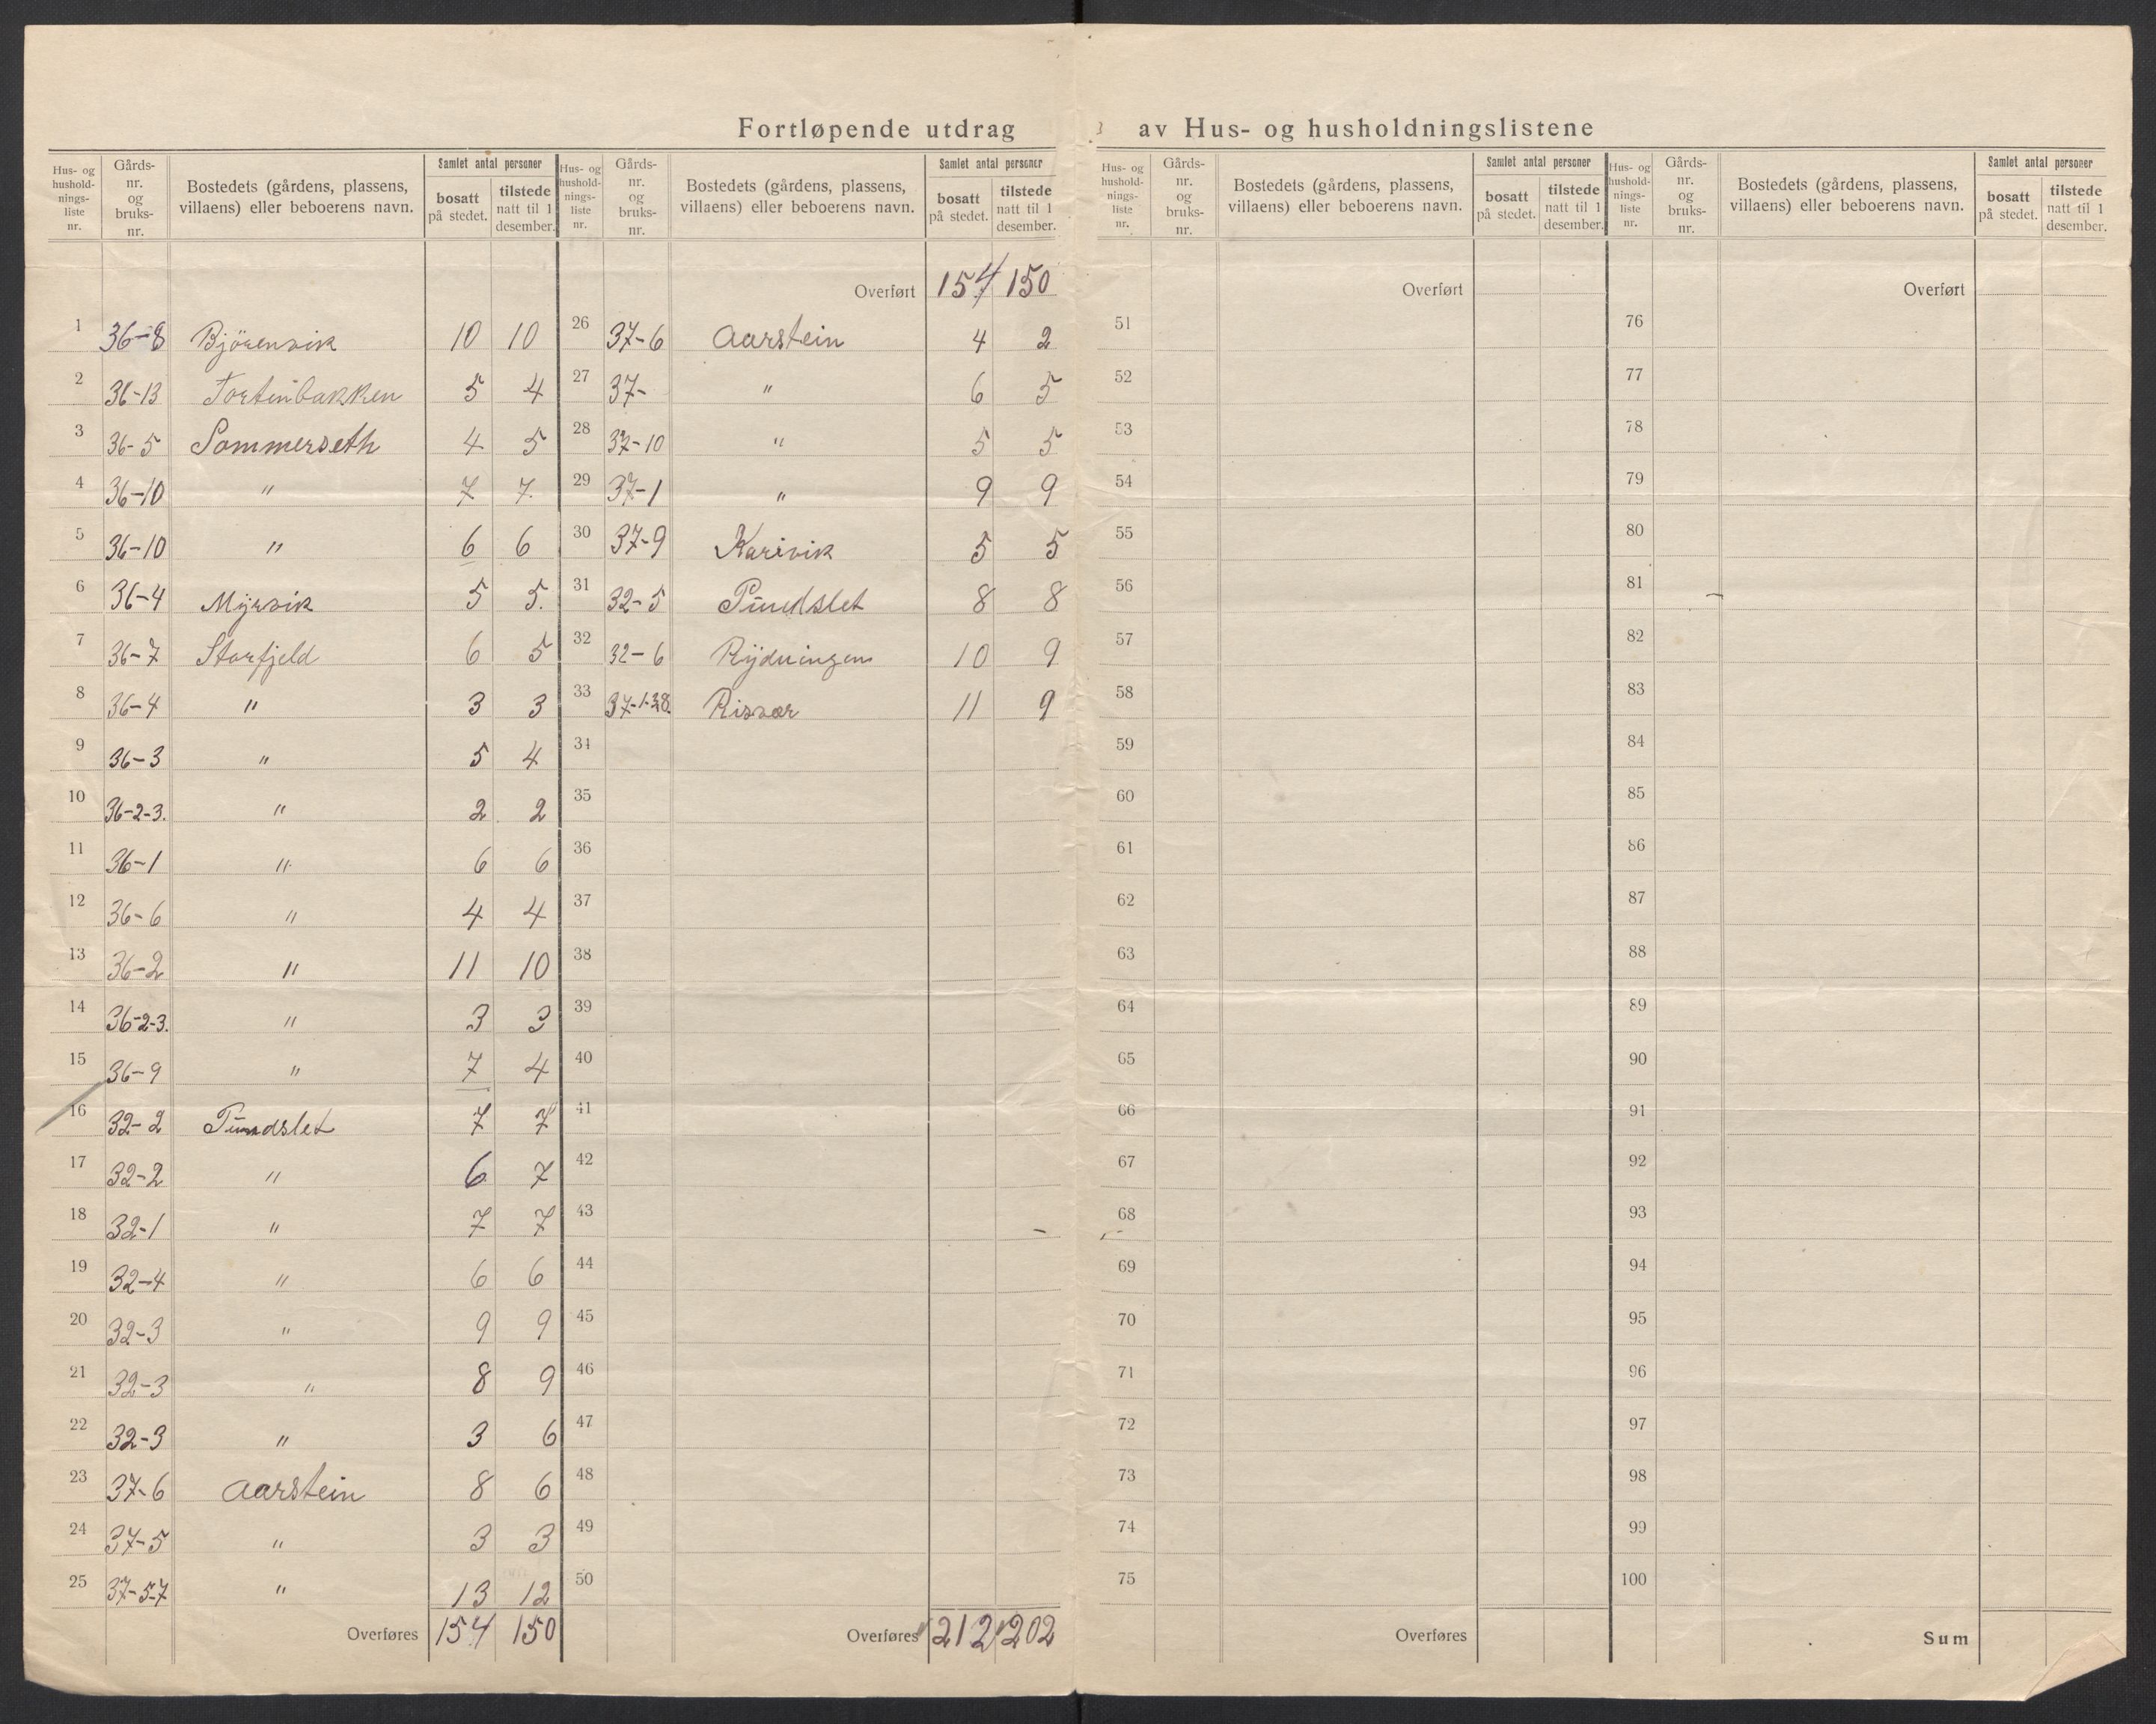 Fortløpende utdrag av Hus- og husholdningslistene
Hus- og hushold-nings-liste nr. | Gårds-nr. og bruks-nr. | Bostedets (gårdens, plassens, villaens) eller beboerens navn. | Samlet antal personer | bosatt på stedet. | tilstede natt til 1 desember.
1 36-8 Bjørenvik 10 10
2 36-13 Tortenbakken 5 4
3 36-5 Sommerseth 4 5
4 36-10 " 7 7.
5 36-10 " 6 6
6 36-4 Myrvik 5 5.
7 36-7 Storfjeld 6 5
8 36-4 " 3 3
9 36-3 " 5 4
10 36-2-3. " 2 2
11 36-1 " 6 6
12 36-6 " 4 4
13 36-2 " 11 10
14 36-2-3. " 3 3
15 36-9 " 7 4
16 32-2 Pundslet 7 7
17 32-2 " 6 7
18 32-1 " 7 7
19 32-4 " 6 6
20 32-3 " 9 9
21 32-3 " 8 9
22 32-3 " 3 6
23 37-6 Aarstein 8 6
24 37-5 " 3 3
25 37-5-7 " 13 12
Overføres 154 150
Hus- og hushold-nings-liste nr. | Gårds-nr. og bruks-nr. | Bostedets (gårdens, plassens, villaens) eller beboerens navn. | Samlet antal personer | bosatt på stedet. | tilstede natt til 1 desember.
Overført 154 150
26 37-6 Aarstein 4 2
27 37- " 6 5
28 37-10 " 5 5
29 37-1 " 9 9
30 37-9 Karivik 5 5
31 32-5 Pundslet 8 8
32 32-6 Rydningen 10 9
33 Risvær 11 9
34
35
36
37
38
39
40
41
42
43
44
45
46
47
48
49
50
Overføres 212 202
Hus- og hushold-nings-liste nr. | Gårds-nr. og bruks-nr. | Bostedets (gårdens, plassens, villaens) eller beboerens navn. | Samlet antal personer | bosatt på stedet. | tilstede natt til 1 desember.
Overført
51
52
53
54
55
56
57
58
59
60
61
62
63
64
65
66
67
68
69
70
71
72
73
74
75
Overføres
Hus- og hushold-nings-liste nr. | Gårds-nr. og bruks-nr. | Bostedets (gårdens, plassens, villaens) eller beboerens navn. | Samlet antal personer | bosatt på stedet. | tilstede natt til 1 desember.
Overført
76
77
78
79
80
81
82
83
84
85
86
87
88
89
90
91
92
93
94
95
96
97
98
99
100
Sum